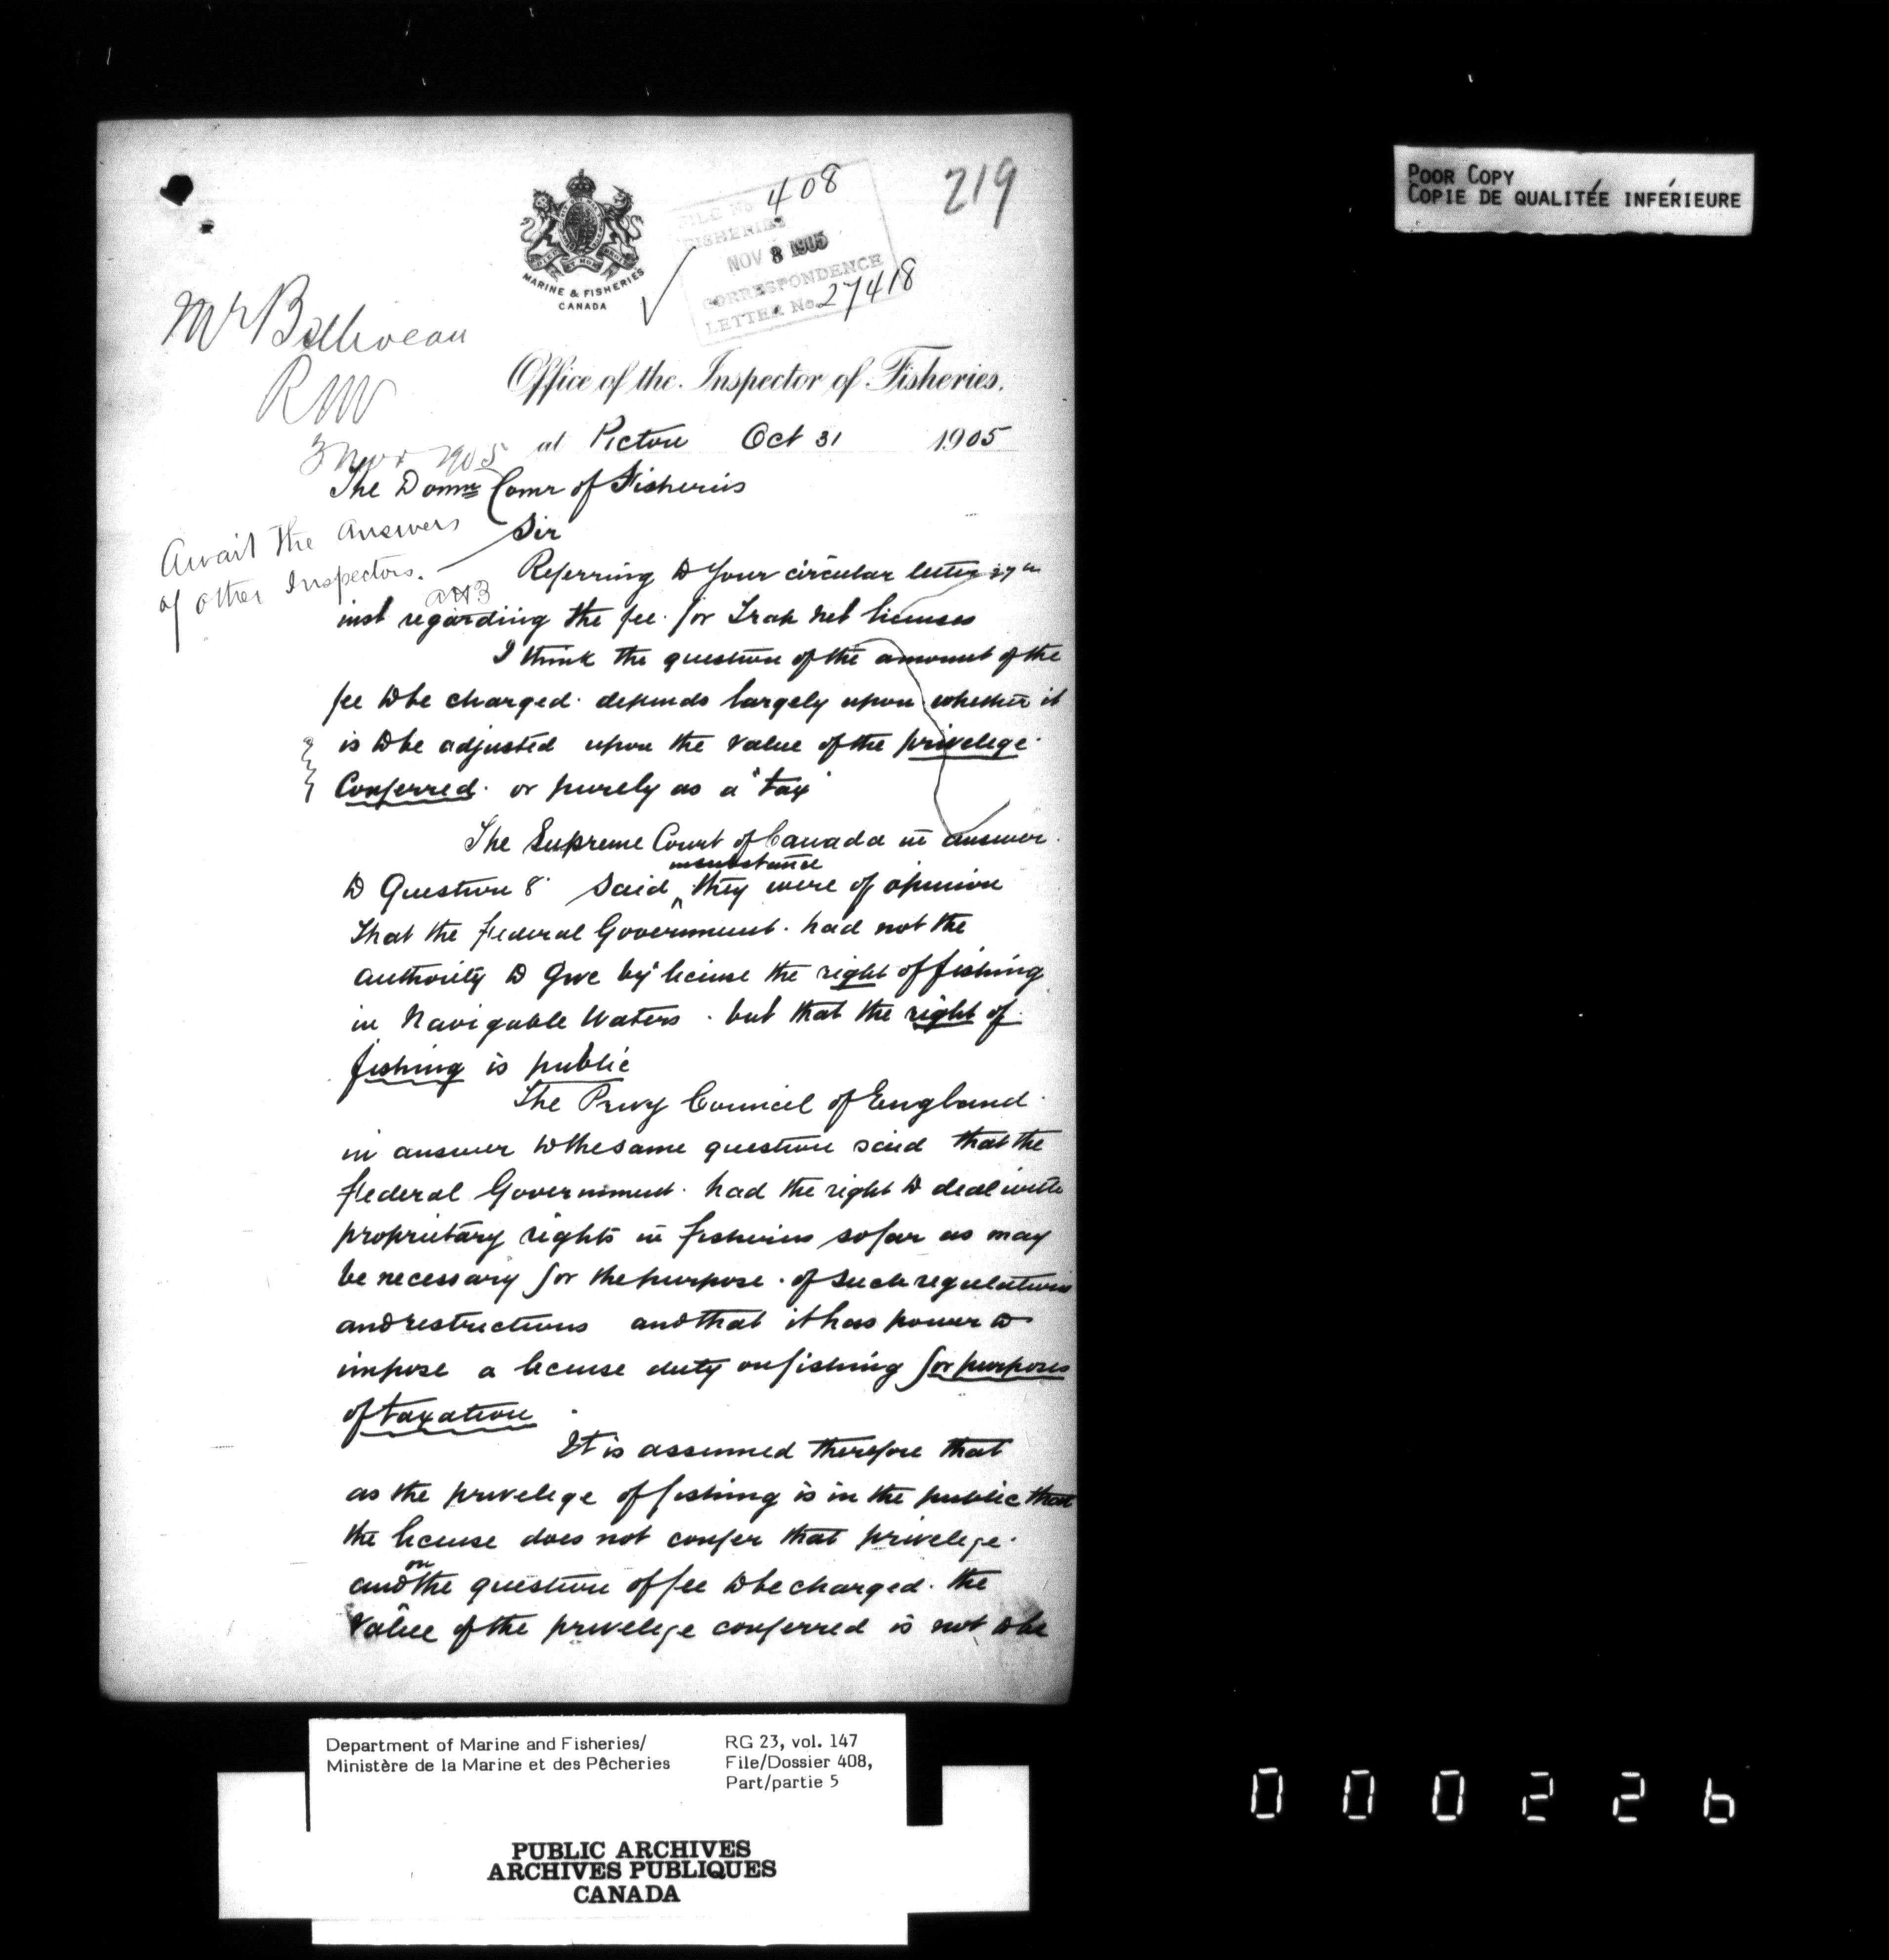 POOR COPY
COPIE DE QUALITÉE INFÉRIEURE
219
FILE No 408
FISHERIES
NOV 3 1905
CORRESPONDENCE
LETTER No. 27418
MARINE & FISHERIES
CANADA
Mr Belliveau
Office of the Inspector of Fisheries.
3 Novr 1905
at Pictou Oct 31 1905
The Domn Comr of Fisheries
Await the answers
of other Inspectors.
Sir
Referring to your circular letter 27th
inst regarding the fee for Trap net licenses
I think the question of the amount of the
fee to be charged depends largely upon whether it
is to be adjusted upon the value of the privelege
Conferred. or purely as a "tax"
The Supreme Court of Canada in answer
to Question 8 said in substance they were of opinion
that the Federal Government had not the
authority to give by license the right of fishing
in Navigable Waters. but that the right of
fishing is public
The Privy Council of England
in answer to the same question said that the
Federal Government had the right to deal with
proprietary rights in fisheries so far as may
be necessary for the purpose of such regulations
and restrictions and that it has power to
impose a license duty on fishing for purposes
of taxation
It is assumed therefore that
as the privelege of fishing is in the public that
the license does not confer that privelege
and on the question of fee to be charged. the
Value of the privelege conferred is not to be
Department of Marine and Fisheries/
Ministère de la Marine et des Pêcheries
RG 23, vol. 147
File/Dossier 408,
Part/partie 5
PUBLIC ARCHIVES
ARCHIVES PUBLIQUES
CANADA
000226